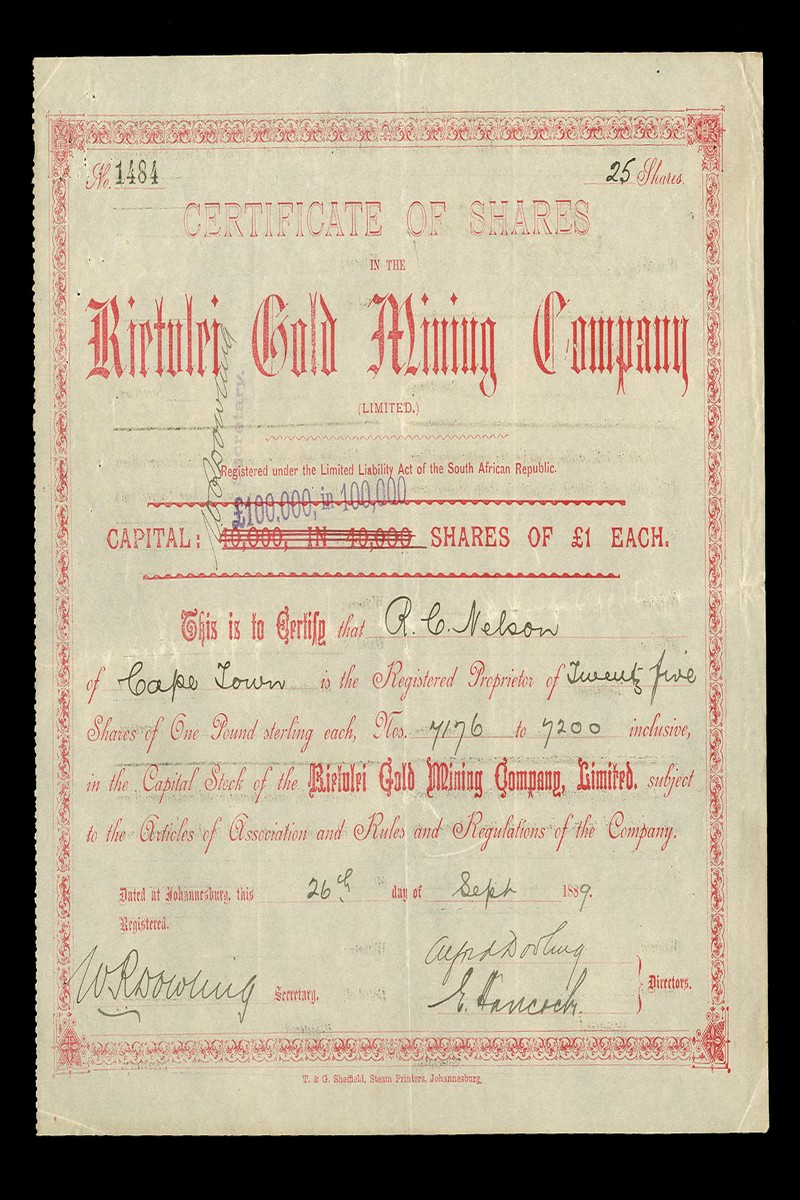 No. 1484
25 Shares.
CERTIFICATE OF SHARES
IN THE
Rietvlei Gold Mining Company
(LIMITED.)
Registered under the Limited Liability Act of the South African Republic.
£100,000, in 100,000
CAPITAL: 40,000, IN 40,000 SHARES OF £1 EACH.
W R Dowling
Secretary.
This is to Certify that R. C. Nelson
of Cape Town is the Registered Proprietor of Twenty five
Shares of One Pound sterling each, Nos. 7176 to 7200 inclusive,
in the Capital Stock of the Rietvlei Gold Mining Company, Limited, subject
to the Articles of Association and Rules and Regulations of the Company.
Dated at Johannesburg, this 26th day of Sept 1889.
Registered.
Alfred Dowling
W R Dowling Secretary.
E. Hancock.
Directors.
T. & G. Sheffield, Steam Printers, Johannesburg.